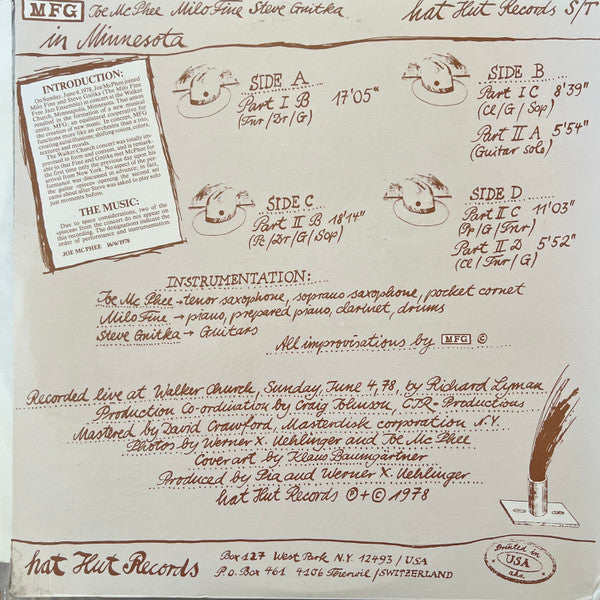 MFG Joe McPhee Milo Fine Steve Gnitka hat Hut Records S/T
in Minnesota
INTRODUCTION:
On Sunday, June 4, 1978, Joe McPhee joined
Milo Fine and Steve Gnitka (The Milo Fine
Free Jazz Ensemble) in concert at the Walker
Church, Minneapolis, Minnesota. That union
resulted in the formation of a new musical
entity, MFG; an equilateral cooperative for
creation of new music. In concept, MFG
functions more like an orchestra than a trio,
creating aural illusions, shifting voices, colors,
textures and moods.
The Walker Church concert was totally im-
provised in form and content, and is remark-
able in that Fine and Gnitka met McPhee for
the first time only the previous day upon his
arrival from New York. No aspect of the per-
formance was discussed in advance; in fact,
the guitar spaces opening the second set
came about after Steve was asked to play solo
just moments before.
THE MUSIC:
Due to space considerations, two of the
spaces from the concert do not appear on
this recording. The designations indicate the
order of performance and instrumentation.
JOE MCPHEE 16/6/1978
SIDE A
Part I B 17'05"
(Tnr/Dr/G)
SIDE B
Part I C 8'39"
(Cl/G/Sop)
Part II A 5'54"
(Guitar solo)
SIDE C
Part II B 18'14"
(Pc/Dr/G/Sop)
SIDE D
Part II C 11'03"
(Pp/G/Tnr)
Part II D 5'52"
(Cl/Tnr/G)
INSTRUMENTATION:
Joe McPhee → tenor saxophone, soprano saxophone, pocket cornet
Milo Fine → piano, prepared piano, clarinet, drums
Steve Gnitka → Guitars
All improvisations by MFG ©
Recorded live at Walker Church, Sunday, June 4, 78, by Richard Lyman
Production Co-ordination by Craig Johnson, CJR-Productions
Mastered by David Crawford, Masterdisk corporation N.Y.
Photos by Werner X. Uehlinger and Joe Mc Phee
Cover art by Klaus Baumgärtner
Produced by Pia and Werner X. Uehlinger
hat Hut Records ℗ + © 1978
hat Hut Records
Box 127 West Park N.Y. 12493 / USA
P.o. Box 461 4106 Therwil / SWITZERLAND
Printed in
USA